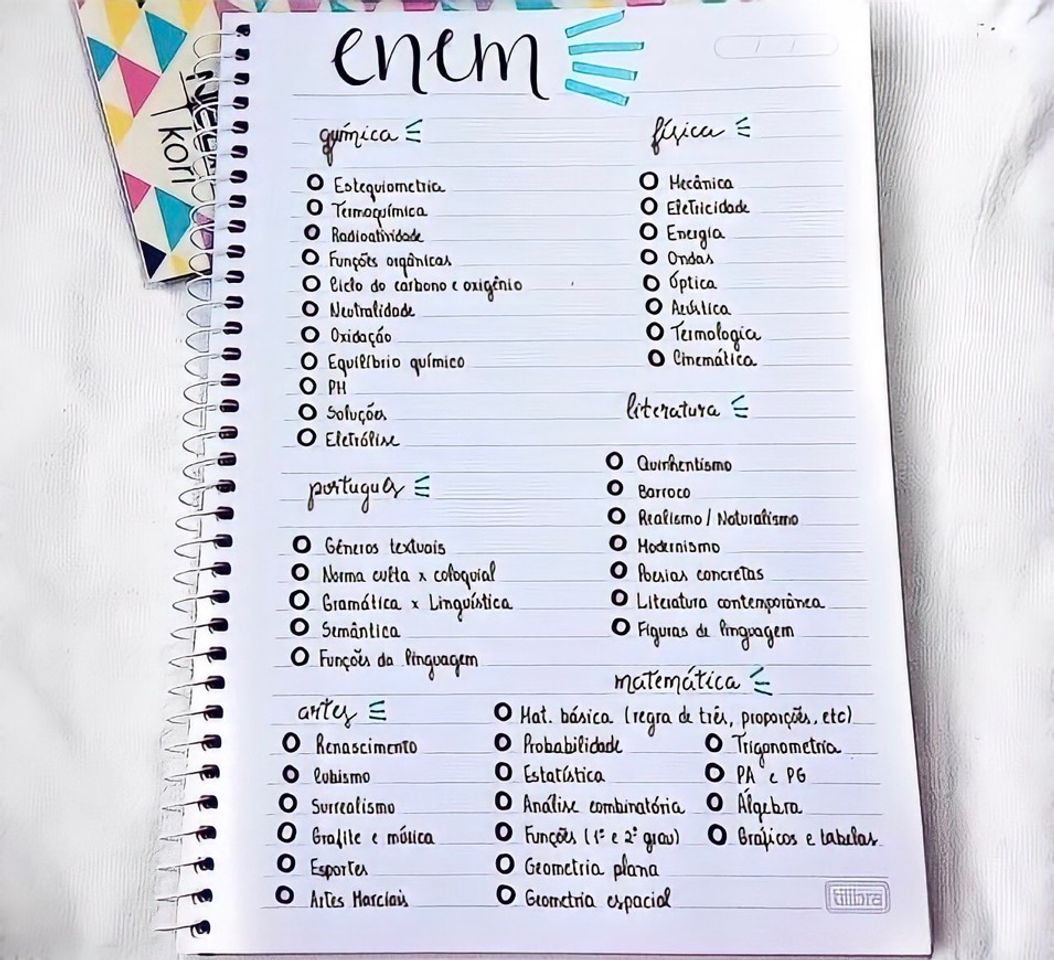 enem
química
Estequiometria
Termoquímica
Radioatividade
Funções orgânicas
Ciclo do carbono e oxigênio
Neutralidade
Oxidação
Equilíbrio químico
PH
Soluções
Eletrólise
física
Mecânica
Eletricidade
Energia
Ondas
Óptica
Acústica
Termologia
Cinemática
literatura
Quinhentismo
Barroco
Realismo / Naturalismo
Modernismo
Poesias concretas
Literatura contemporânea
Figuras de linguagem
português
Gêneros textuais
Norma culta x coloquial
Gramática x Linguística
Semântica
Funções da linguagem
artes
Renascimento
Cubismo
Surrealismo
Grafite e música
Esportes
Artes Marciais
matemática
Mat. básica (regra de três, proporções, etc)
Probabilidade
Estatística
Análise combinatória
Funções (1º e 2º grau)
Geometria plana
Geometria espacial
Trigonometria
PA e PG
Álgebra
Gráficos e tabelas
tilibra
kori